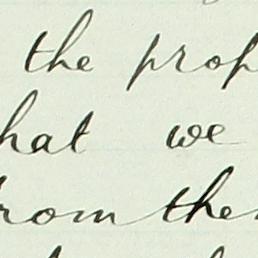 the prop
hat we
rom the